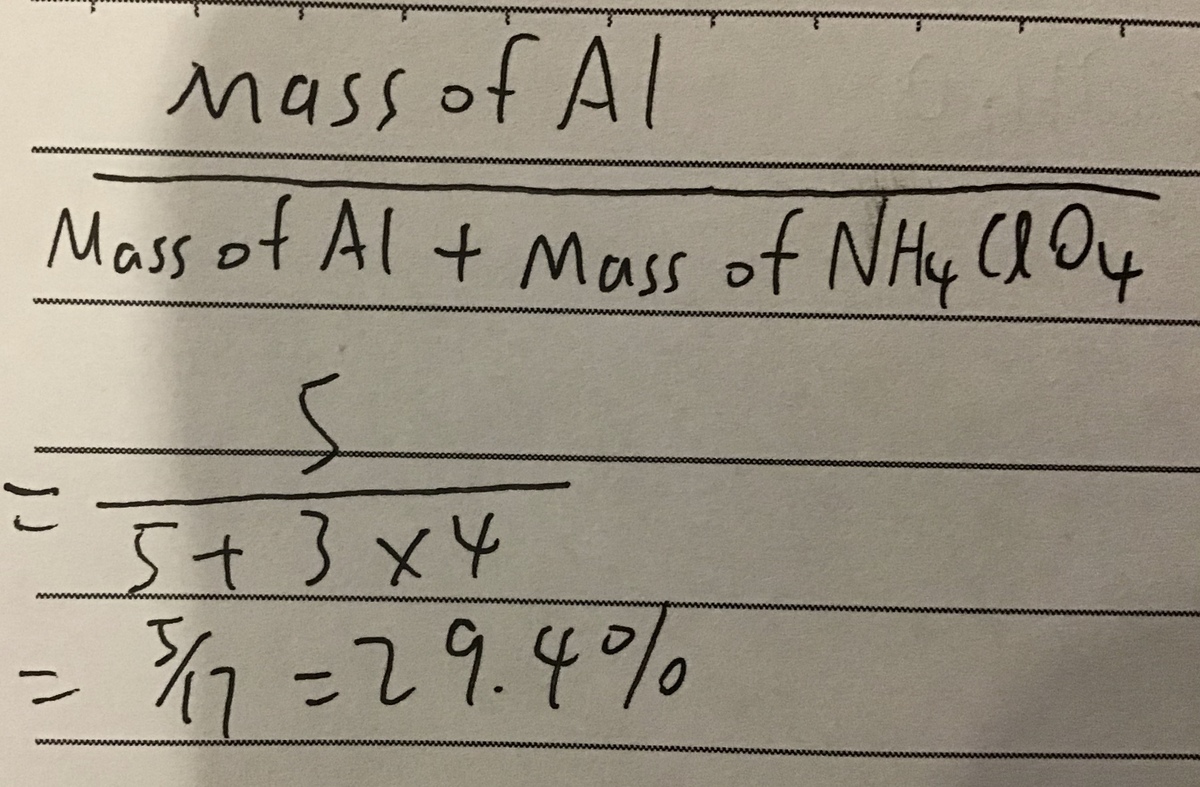 Mass of Al
Mass of Al + Mass of NH₄ClO₄
5
=
5 + 3 × 4
= 5/17 = 29.4%